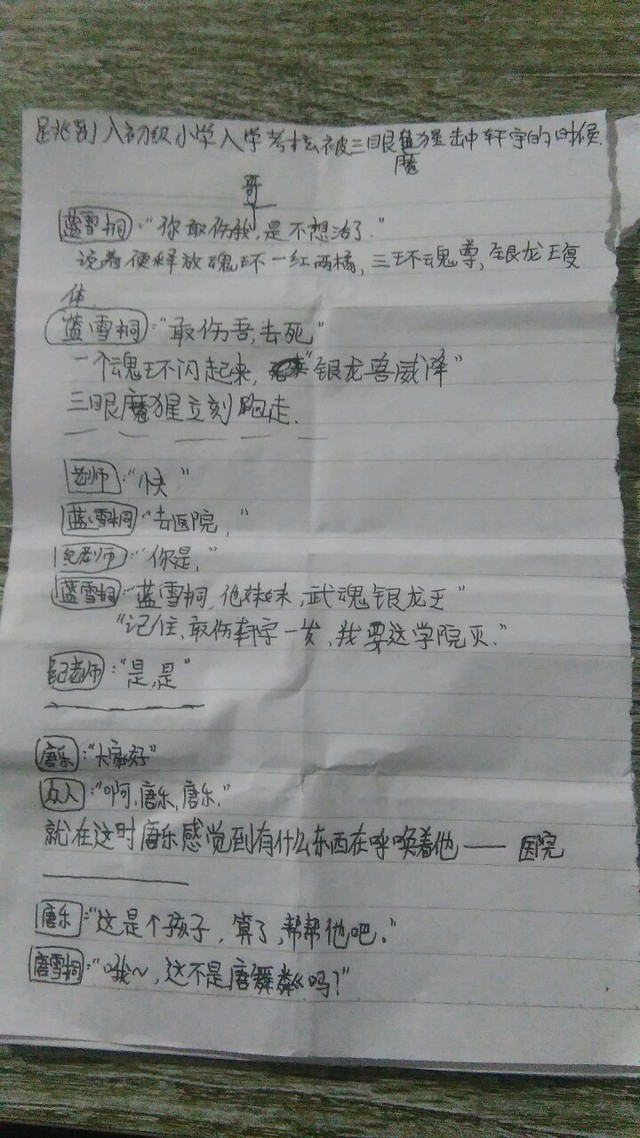 是跳到入初级小学入学考核被三眼魔猩击中轩宇的时候.
哥
蓝雪桐:“你敢伤我,是不想活了.”
说着便释放魂环一红两橘,三环魂尊,银龙王复
体.
蓝雪桐:“敢伤吾,去死”
一个魂环闪起来,“银龙兽威降”
三眼魔猩立刻跑走.
老师:“快”
蓝雪桐:“去医院,”
老师:“你是,”
蓝雪桐:“蓝雪桐,他妹妹,武魂银龙王”
“记住,敢伤轩宇一发,我要这学院灭.”
老师:“是,是”
唐乐:“大家好”
众人:“啊,唐乐,唐乐.”
就在这时唐乐感觉到有什么东西在呼唤着他——医院
唐乐:“这是个孩子,算了,帮帮他吧.”
唐雪桐:“哦~,这不是唐舞麟吗?”